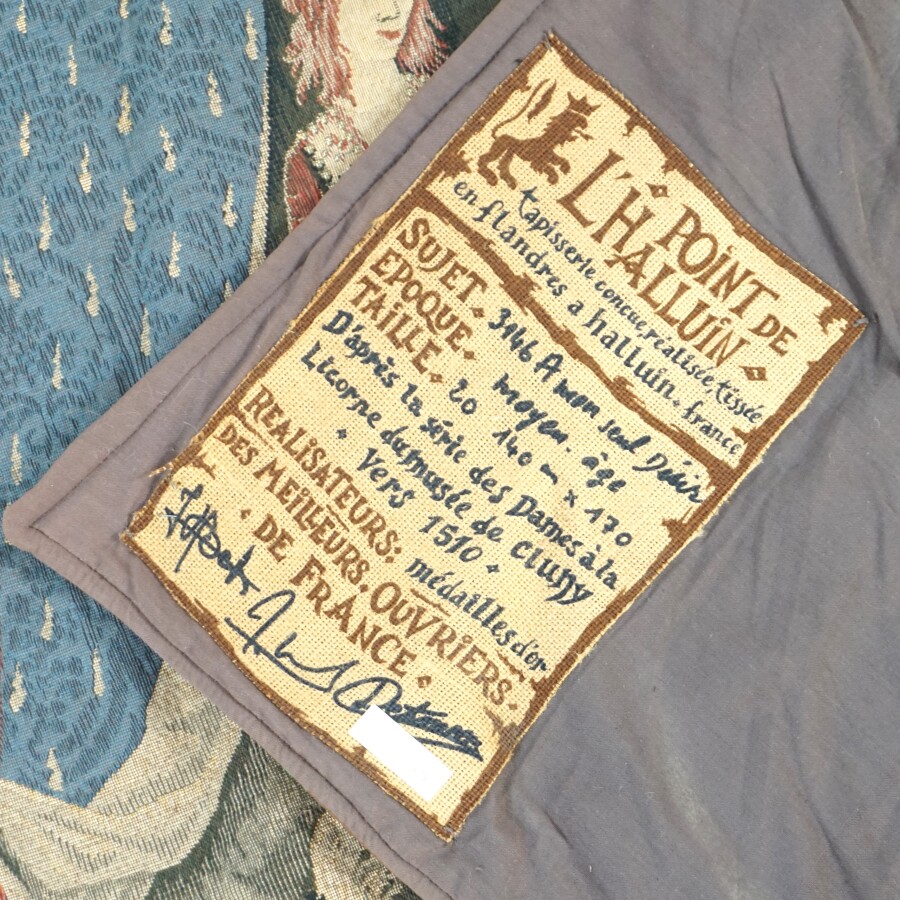 POINT DE
L'HALLUIN
tapisserie concue, réalisée, tissée
en flandres a halluin. france
SUJET. 3146 A mon seul Désir
EPOQUE. moyen. âge
TAILLE. 20 140 m x 170
D'après la série des Dames à la
Licorne du musée de Cluny
Vers 1510
REALISATEURS: médailles d'or
DES MEILLEURS. OUVRIERS.
DE FRANCE.